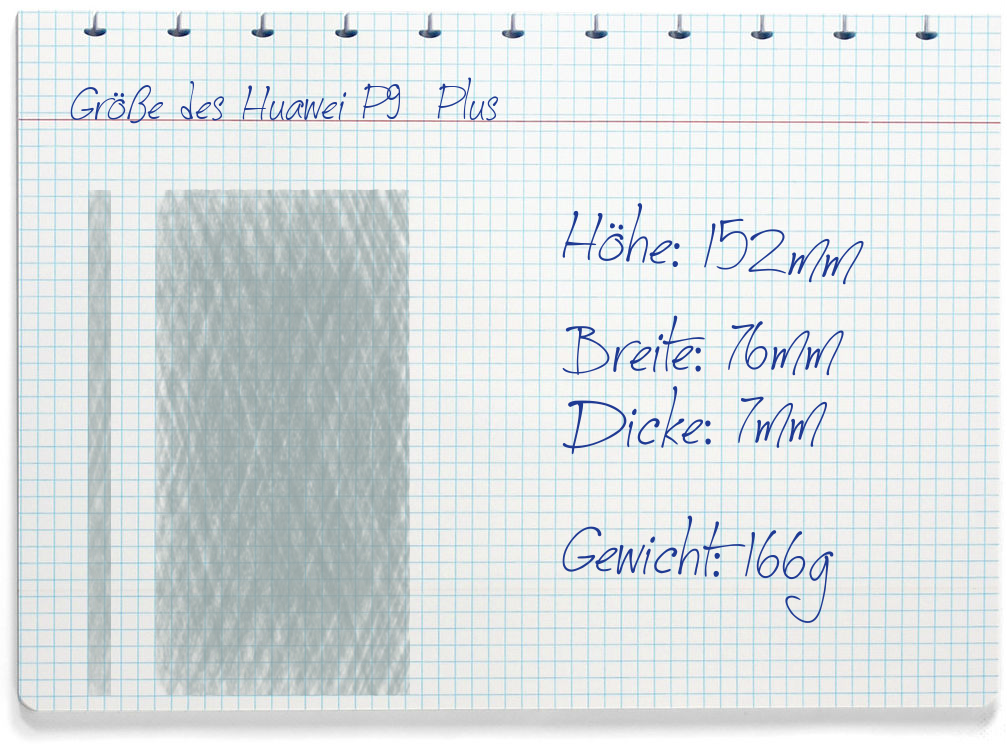 Größe des Huawei P9 Plus
Höhe: 152mm
Breite: 76mm
Dicke: 7mm
Gewicht: 166g